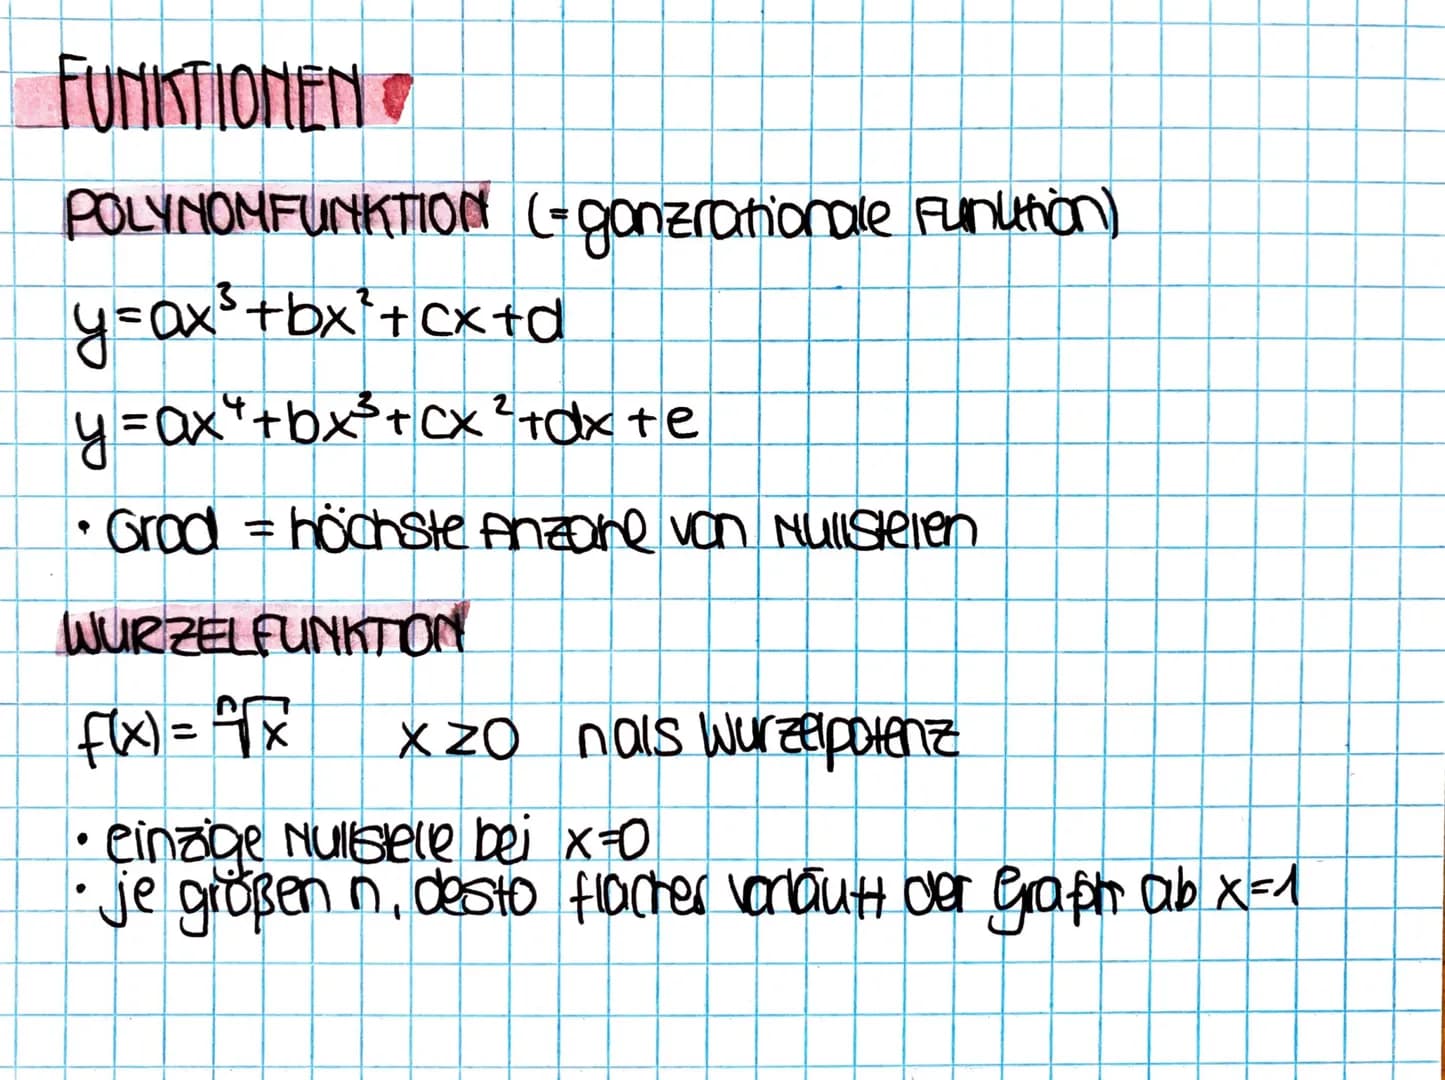 FUNKTIONEN
POLYNOMFUNKTION (=ganzrationale Funktion)
y=ax³+bx²+cx+d
y=ax⁴+bx³+cx²+dx+e
• Grad = höchste Anzahl von Nullstellen
WURZELFUNKTION
f(x)=ⁿ√x x≥0 n als Wurzelpotenz
• einzige Nullstelle bei x=0
• je größer n, desto flacher verläuft der Graph ab x=1